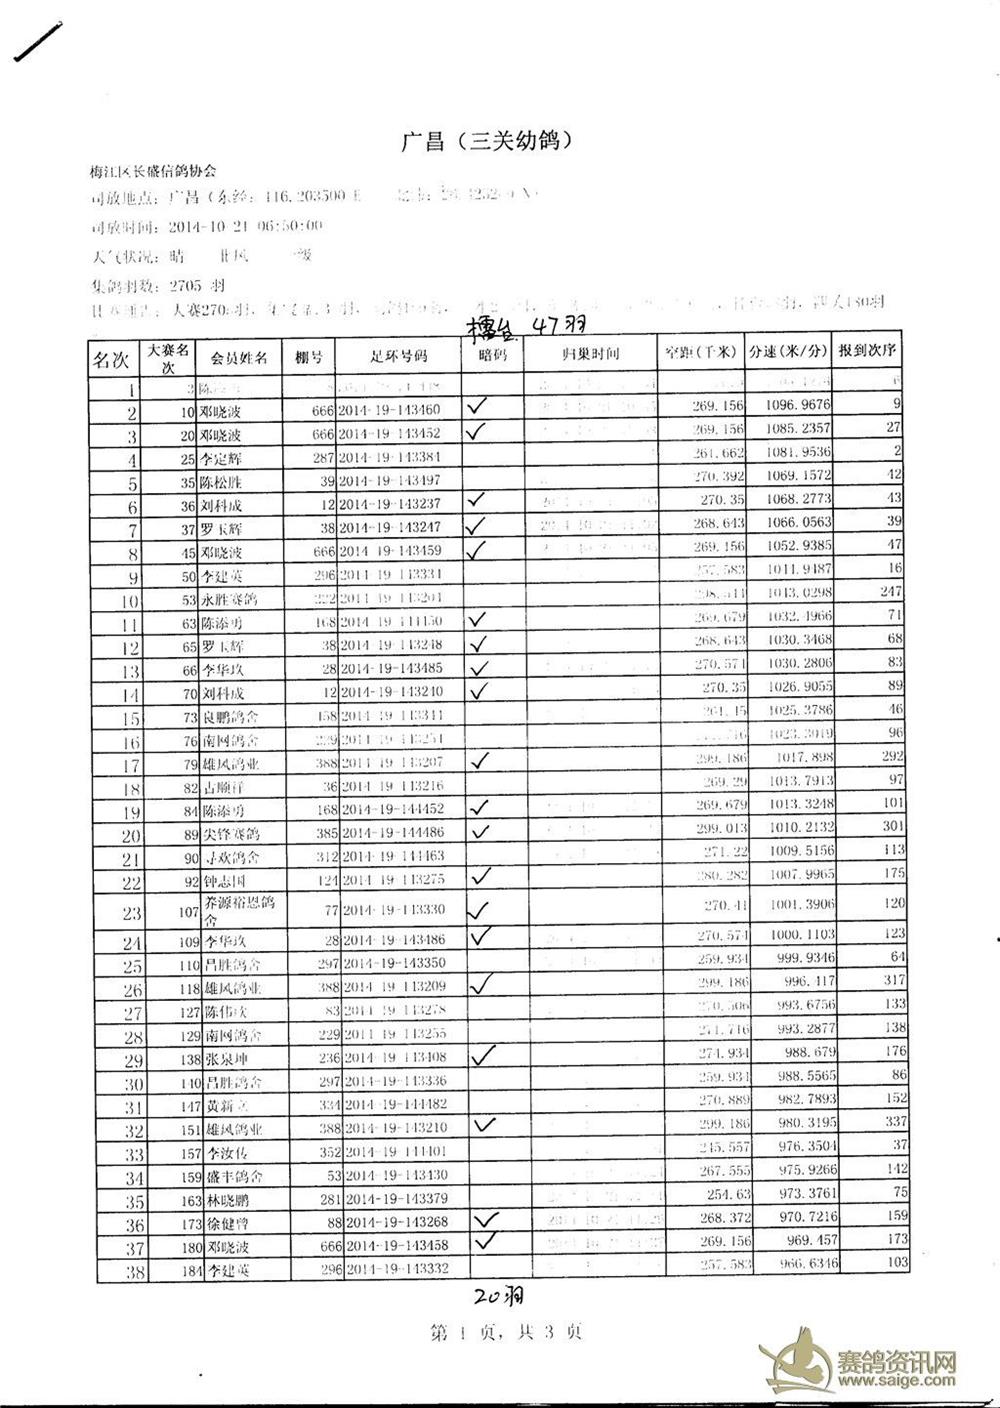 广昌（三关幼鸽）
梅江区长盛信鸽协会
司放地点：广昌（东经：116.203500 E
司放时间：2014-10-21 06:50:00
天气状况：晴 北风 一级
集鸽羽数：2705 羽
大赛270羽，
擂台 47羽
名次 大赛名次 会员姓名 棚号 足环号码 暗码 归巢时间 空距(千米) 分速(米/分) 报到次序
1 3 陈
2 10 邓晓波 666 2014-19-143460 ✓ 269.156 1096.9676 9
3 20 邓晓波 666 2014-19-143452 ✓ 269.156 1085.2357 27
4 25 李定辉 287 2014-19-143384 261.662 1081.9536 2
5 35 陈松胜 39 2014-19-143497 270.392 1069.1572 42
6 36 刘科成 12 2014-19-143237 ✓ 270.35 1068.2773 43
7 37 罗玉辉 38 2014-19-143247 ✓ 268.643 1066.0563 39
8 45 邓晓波 666 2014-19-143459 ✓ 269.156 1052.9385 47
9 50 李建英 296 2014-19-143331 257.583 1044.9487 16
10 53 永胜赛鸽 222 2014-19-143201 298.544 1043.0298 247
11 63 陈添勇 168 2014-19-144450 ✓ 269.679 1032.4966 71
12 65 罗玉辉 38 2014-19-143248 ✓ 268.643 1030.3468 68
13 66 李华玖 28 2014-19-143485 ✓ 270.574 1030.2806 83
14 70 刘科成 12 2014-19-143240 ✓ 270.35 1026.9055 89
15 73 良鹏鸽舍 158 2014-19-143341 264.45 1025.3786 46
16 76 南网鸽舍 229 2014-19-143254 1023.3019 96
17 79 雄风鸽业 388 2014-19-143207 ✓ 299.186 1017.898 292
18 82 古顺祥 36 2014-19-143216 269.29 1013.7913 97
19 84 陈添勇 168 2014-19-144452 ✓ 269.679 1013.3248 101
20 89 尖锋赛鸽 385 2014-19-144486 ✓ 299.013 1010.2132 301
21 90 寻欢鸽舍 312 2014-19-144463 271.22 1009.5156 113
22 92 钟志国 124 2014-19-143275 ✓ 280.282 1007.9965 175
23 107 养源裕恩鸽舍 77 2014-19-143330 ✓ 270.41 1001.3906 120
24 109 李华玖 28 2014-19-143486 ✓ 270.574 1000.1103 123
25 110 昌胜鸽舍 297 2014-19-143350 259.934 999.9346 64
26 118 雄风鸽业 388 2014-19-143209 ✓ 299.186 996.417 317
27 127 陈伟 83 2014-19-143278 270.506 993.6756 133
28 129 南网鸽舍 229 2014-19-143255 271.716 993.2877 138
29 138 张泉坤 236 2014-19-143408 ✓ 274.934 988.679 176
30 140 昌胜鸽舍 297 2014-19-143336 259.934 988.5565 86
31 147 黄新立 334 2014-19-144482 270.889 982.7893 152
32 151 雄风鸽业 388 2014-19-143210 ✓ 299.186 980.3195 337
33 157 李汝传 352 2014-19-144401 245.557 976.3504 37
34 159 盛丰鸽舍 53 2014-19-143430 267.555 975.9266 142
35 163 林晓鹏 281 2014-19-143379 254.63 973.3761 75
36 173 徐健曾 88 2014-19-143268 ✓ 268.372 970.7216 159
37 180 邓晓波 666 2014-19-143458 ✓ 269.156 969.457 173
38 184 李建英 296 2014-19-143332 257.583 966.6346 103
20羽
第 1 页，共 3 页
赛鸽资讯网
www.saige.com